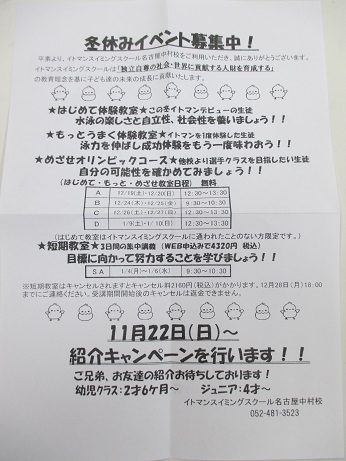 冬休みイベント募集中！
平素より、イトマンスイミングスクール名古屋中村校をご利用いただき、誠にありがとうございます。
イトマンスイミングスクールは「独立自尊の社会・世界に貢献する人財を育成する」
の教育理念を基に子ども達の未来の成長に貢献いたします。
★はじめて体験教室★この冬イトマンデビューの生徒
水泳の楽しさと自立性、社会性を養いましょう！！
★もっとうまく体験教室★イトマンを1度体験した生徒
泳力を伸ばし成功体験をもう一度味わおう！！
★めざせオリンピックコース★他校より選手クラスを目指したい生徒
自分の可能性を確かめてみましょう！！
(はじめて・もっと・めざせ教室日程) 無料
A 12/19(土)・12/20(日) 12:30～13:30
B 12/24(木)・12/25(金) 9:30～10:30
C 12/26(土)・12/27(日) 12:30～13:30
D 1/9(土)・1/10(日) 12:30～13:30
(はじめて教室はイトマンスイミングスクールに通われたことのない方限定です。)
★短期教室★3日間の集中講義 (WEB申込みで4320円 税込)
目標に向かって努力することを学びましょう！！
SA 1/4(月)～1/6(水) 9:30～10:30
※短期教室はキャンセルされますとキャンセル料2160円(税込)がかかります。12月28日(月)18:00
までにご連絡ください。受講期間開始後のキャンセルは返金できません。
11月22日(日)～
紹介キャンペーンを行います！！
ご兄弟、お友達の紹介お待ちしております！
幼児クラス:2才6ケ月～ ジュニア:4才～
イトマンスイミングスクール名古屋中村校
052-481-3523